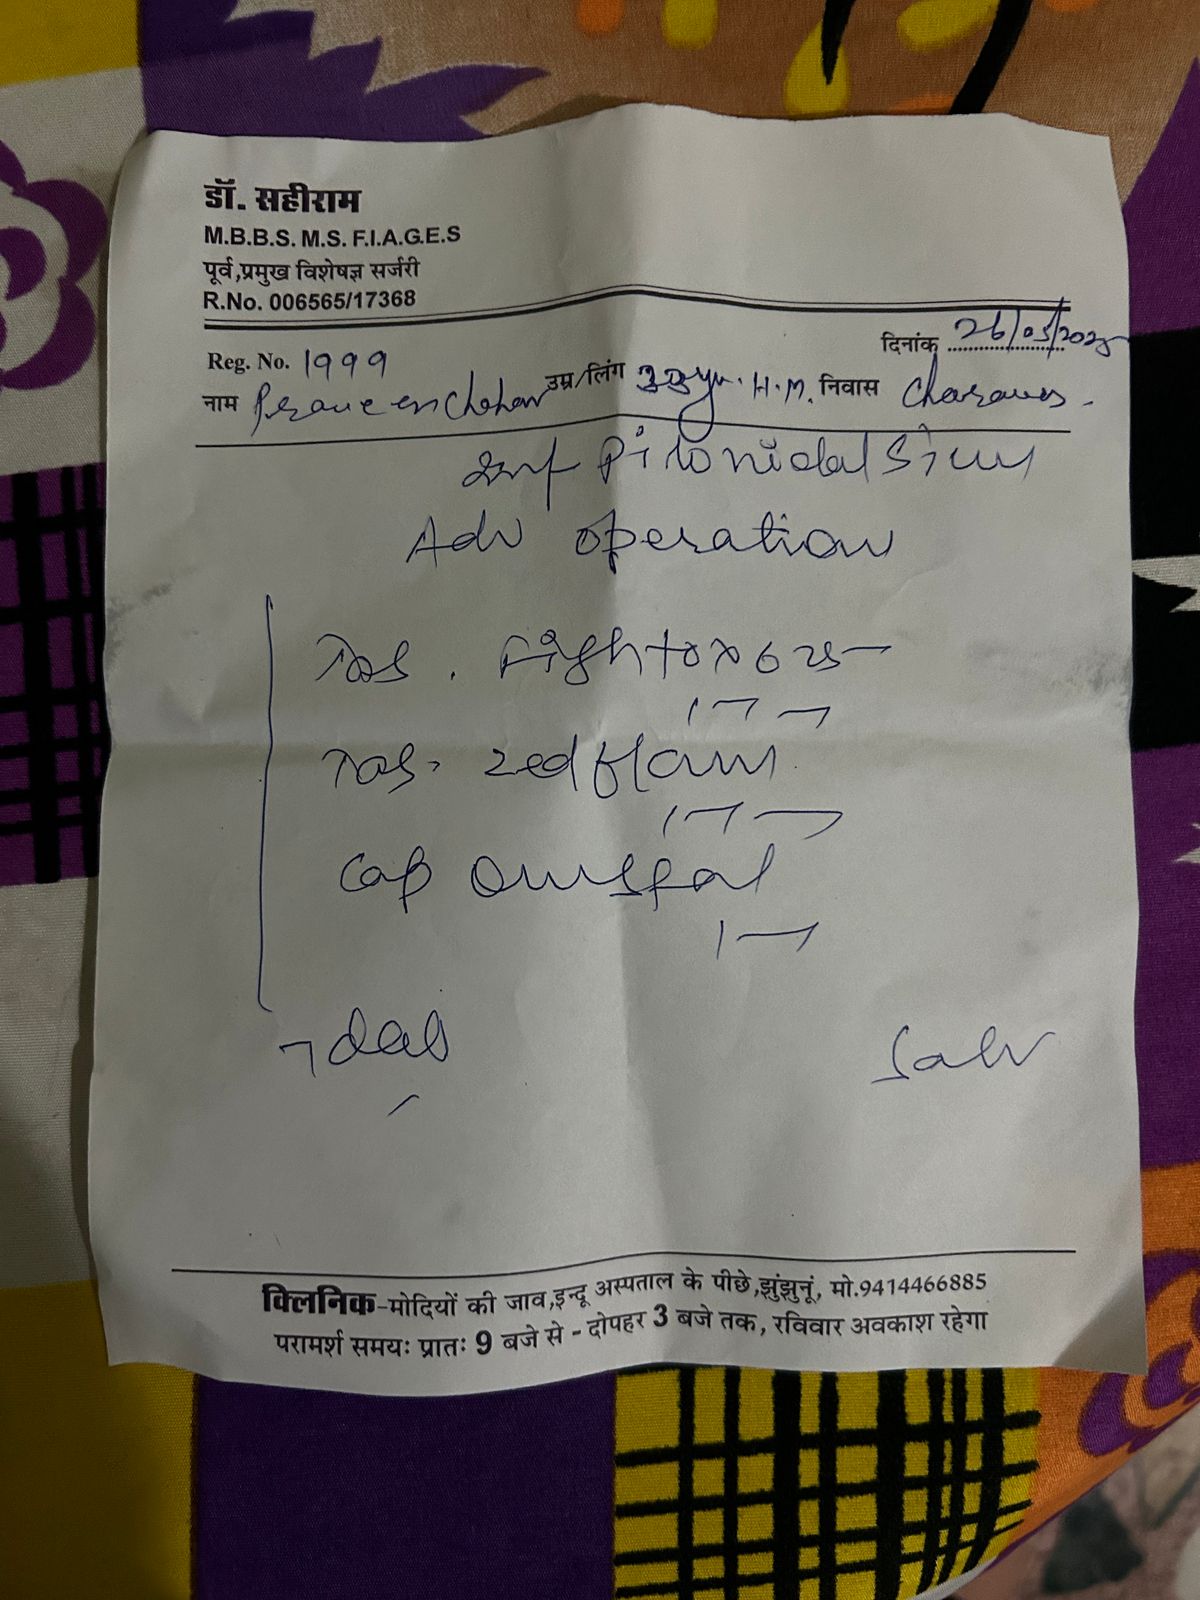 डॉ. सहीराम
M.B.B.S. M.S. F.I.A.G.E.S
पूर्व,प्रमुख विशेषज्ञ सर्जरी
R.No. 006565/17368
दिनांक 26/05/2025
Reg. No. 1999
नाम Praveen Chohan उम्र/लिंग 33yr. H.M. निवास
Inf Pilonidal Sinus
Adv operation
Tab. Fightox 625
Tab. zedflam
Cap Omspal
7 da
क्लिनिक-मोदियों की जाव,इन्दू अस्पताल के पीछे,झुंझुनूं, मो.9414466885
परामर्श समयः प्रातः 9 बजे से - दोपहर 3 बजे तक, रविवार अवकाश रहेगा